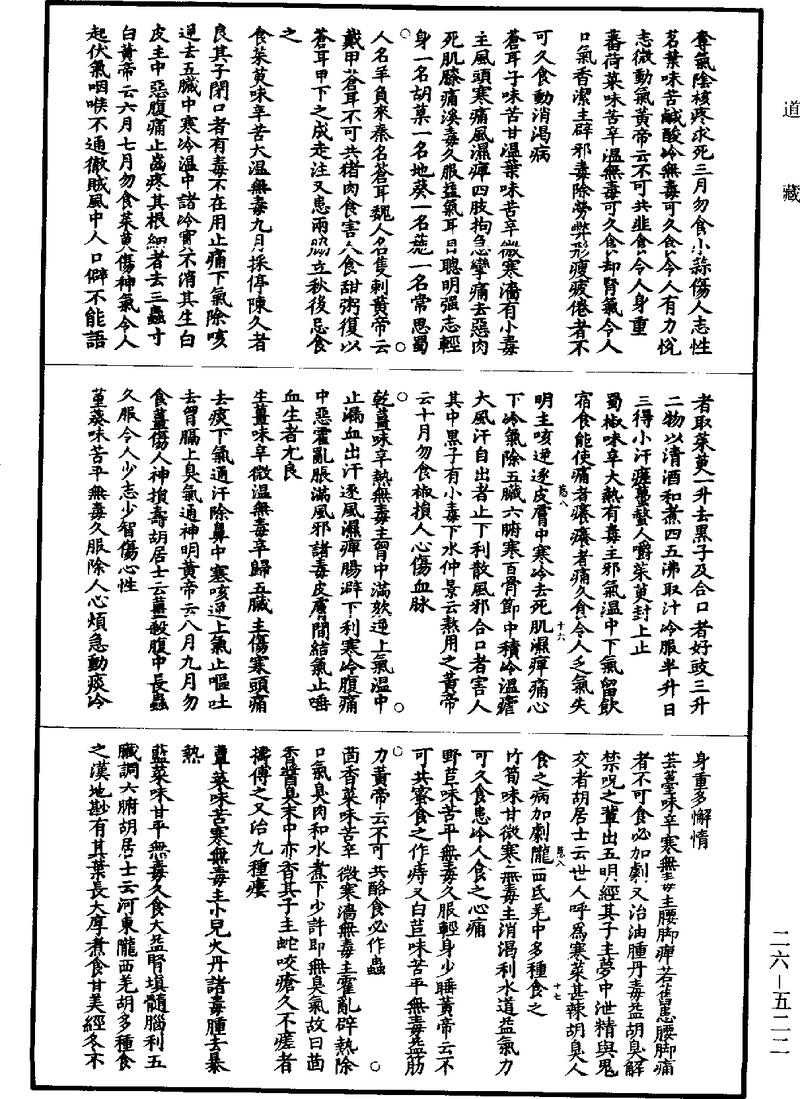 道藏
奪氣陰核疼求死三月勿食小蒜傷人志性
茗葉味苦鹹酸冷無毒可久食令人有力悅
志微動氣黃帝云不可共韭食令人身重
蕃荷菜味苦辛溫無毒可久食却腎氣令人
口氣香潔主辟邪毒除勞弊形瘦疲倦者不
可久食動消渴病
蒼耳子味苦甘溫葉味苦辛微寒濇有小毒
主風頭寒痛風濕痺四肢拘急攣痛去惡肉
死肌膝痛溪毒久服益氣耳目聰明强志輕
身一名胡菜一名地葵一名葹一名常思蜀
人名羊負來秦名蒼耳魏人名隻刺黃帝云
戴甲蒼耳不可共猪肉食害人食甜粥復以
蒼耳甲下之成走注又患兩脇立秋後忌食
之
食茱萸味辛苦大溫無毒九月採停陳久者
良其子閉口者有毒不在用止痛下氣除咳
逆去五臟中寒冷溫中諸冷實不消其生白
皮主中惡腹痛止齒疼其根細者去三蟲寸
白黃帝云六月七月勿食茱萸傷神氣令人
起伏氣咽喉不通徹賊風中人口僻不能語
者取茱萸一升去黑子及合口者好豉三升
二物以清酒和煮四五沸取汁冷服半升日
三得小汗瘥蠆螫人嚼茱萸封上止
蜀椒味辛大熱有毒主邪氣溫中下氣留飲
宿食能使痛者癢癢者痛久食令人乏氣失
明主咳逆逐皮膚中寒冷去死肌濕痺痛心
下冷氣除五臟六腑寒百骨節中積冷溫瘧
大風汗自出者止下利散風邪合口者害人
其中黑子有小毒下水仲景云熬用之黃帝
云十月勿食椒損人心傷血脉
乾薑味辛熱無毒主胷中滿欬逆上氣溫中
止漏血出汗逐風濕痺腸辟下利寒冷腹痛
中惡霍亂脹滿風邪諸毒皮膚間結氣止唾
血生者尤良
生薑味辛微溫無毒辛歸五臟主傷寒頭痛
去痰下氣通汗除鼻中塞咳逆上氣止嘔吐
去胷膈上臭氣通神明黃帝云八月九月勿
食薑傷人神損壽胡居士云薑殺腹中長蟲
久服令人少志少智傷心性
菫葵味苦平無毒久服除人心煩急動痰冷
身重多懈惰
芸薹味辛寒無毒主腰脚痺若舊患腰脚痛
者不可食必加劇又治油腫丹毒益胡臭解
禁呪之輩出五明經其子主夢中泄精與鬼
交者胡居士云世人呼爲寒菜甚辣胡臭人
食之病加劇隴西氐羌中多種食之
竹筍味甘微寒無毒主消渴利水道益氣力
可久食患冷人食之心痛
野苣味苦平無毒久服輕身少睡黃帝云不
可共蜜食之作痔又白苣味苦平無毒益筋
力黃帝云不可共酪食必作蟲
茴香菜味苦辛微寒濇無毒主霍亂辟熱除
口氣臭肉和水煮下少許即無臭氣故曰茴
香醬臭末中亦香其子主蛇咬瘡久不瘥者
擣傅之又治九種瘻
蕈菜味苦寒無毒主小兒火丹諸毒腫去暴
熱
藍菜味甘平無毒久食大益腎塡髓腦利五
臟調六腑胡居士云河東隴西羌胡多種食
之漢地尠有其葉長大厚煮食甘美經冬不
二六—五二二